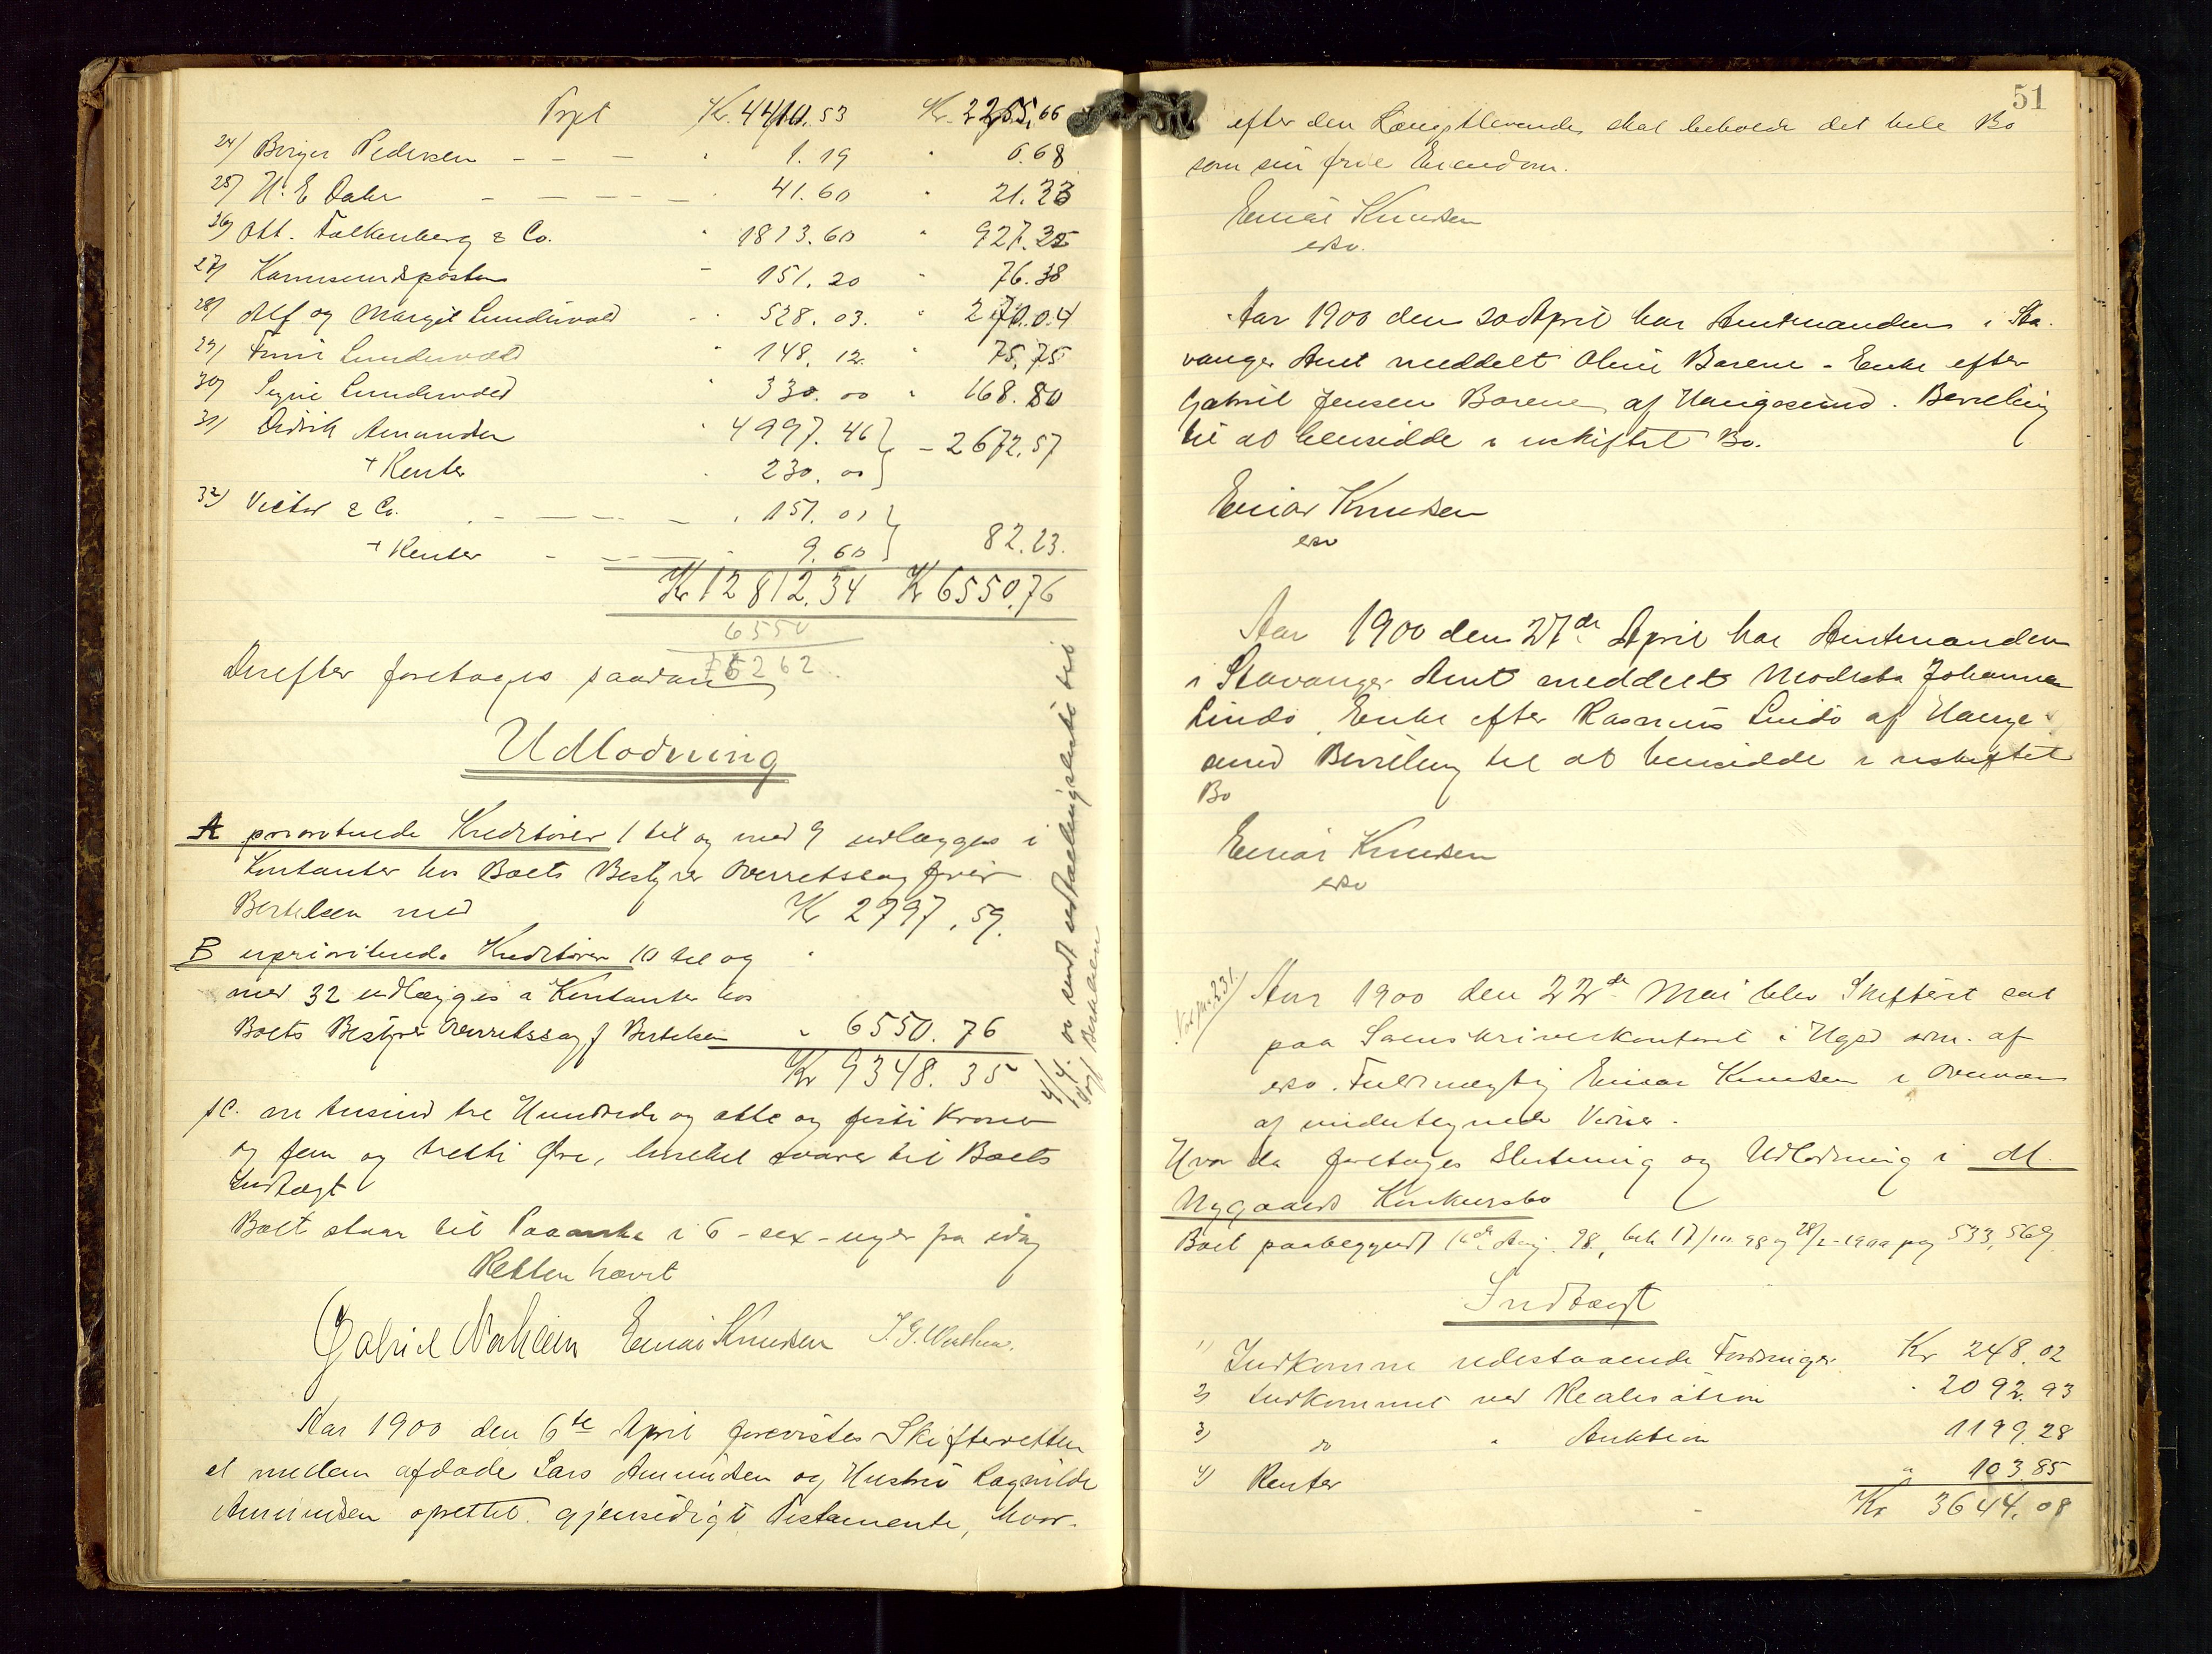 Kr. 4410.53 Kr. 2255,66
24/ Birger Pedersen - - - " 1.19 " 0.68
25/ H. E. Dahr - - - - - " 41.60 " 21.23
26/ Ott. Falkenberg & Co. " 1813.60 " 927.35
27/ Karmsundsposten " 151.20 " 76.38
28/ Alf og Margit Lundevold " 528.03. " 270.04
29/ Lundevold " 148.12. " 75,75
30/ Signe Lundevold " 330.00 " 168.80
31/ Didrik Amundsen " 4997.46 } - 2672.57
+ Renter " 230.00 }
32/ Victor & Co. . - - - - " 151.01 }
+ Renter - - - - " 9.60 } 82.23.
Kr 12812.34 Kr 6550.76
6550
6262
Derefter foretages saadan
Udlodning
A prioriterede Kreditorer 1 til og med 9 udlægges i
Kontanter hos Boets Bestyrer Overretssag fører
Bertelsen med Kr 2797.59.
B uprioriterede Kreditorer 10 til og
med 32 udlægges i Kontanter hos
Boets Bestyrer Overretssagf Bertelsen " 6550.76
Kr 9348.35
sc. ni tusind tre Hundrede og otte og firti Kroner
og fem og tretti Øre, hvilket svarer til Boets
Indtægt
Boet staar til Paaanke i 6 - sex - uger fra idag
Retten hævet
Gabriel Einar Knudsen
4/4. 00 sendt udbetalingsliste til
Sagf Bertelsen
Aar 1900 den 6te April forevistes Skifteretten
et mellem afdøde Lars Amundsen og Hustru Ragnilde
Amundsen oprettet gjensidigt Testamente, hvor-
51
efter den Længstlevende skal beholde det hele Bo
som sin frie Eiendom.
Einar Knudsen
eso.
Aar 1900 den 20 April har Amtmanden i Sta-
vanger Amt meddelt Oline Barene - Enke efter
Gabriel Jensen Barene af Haugesund. Bevilling
til at hensidde i uskiftet Bo.
Einar Knudsen
eso
Aar 1900 den 27de April har Amtmanden
i Stavanger Amt meddelt Modesta Johanna
Lindø, Enke efter Rasmus Lindø af Hauge-
sund Bevilling til at hensidde i uskiftet
Bo
Einar Knudsen
eso
Aar 1900 den 22de Mai blev Skifteret sat
paa Sorenskriverkontoret i Hgsd adm. af
eso. Fuldmægtig Einar Knudsen i Overvær
af undertegnede Vidner.
Hvor da foretages Slutning og Udlodning i M.
Nygaards Konkursbo
Boet paabegyndt 16de Aug. 98, beh 17/10. 98 og 28/2-1900 pag 533, 569
Indtægt
1) Indkomne udestaaende Fordringer. Kr 248.02
2) Indkommet ved Realisation " 2092.93
3) do " Auktion 1199.28
4) Renter " 103.85
Kr 3644.08